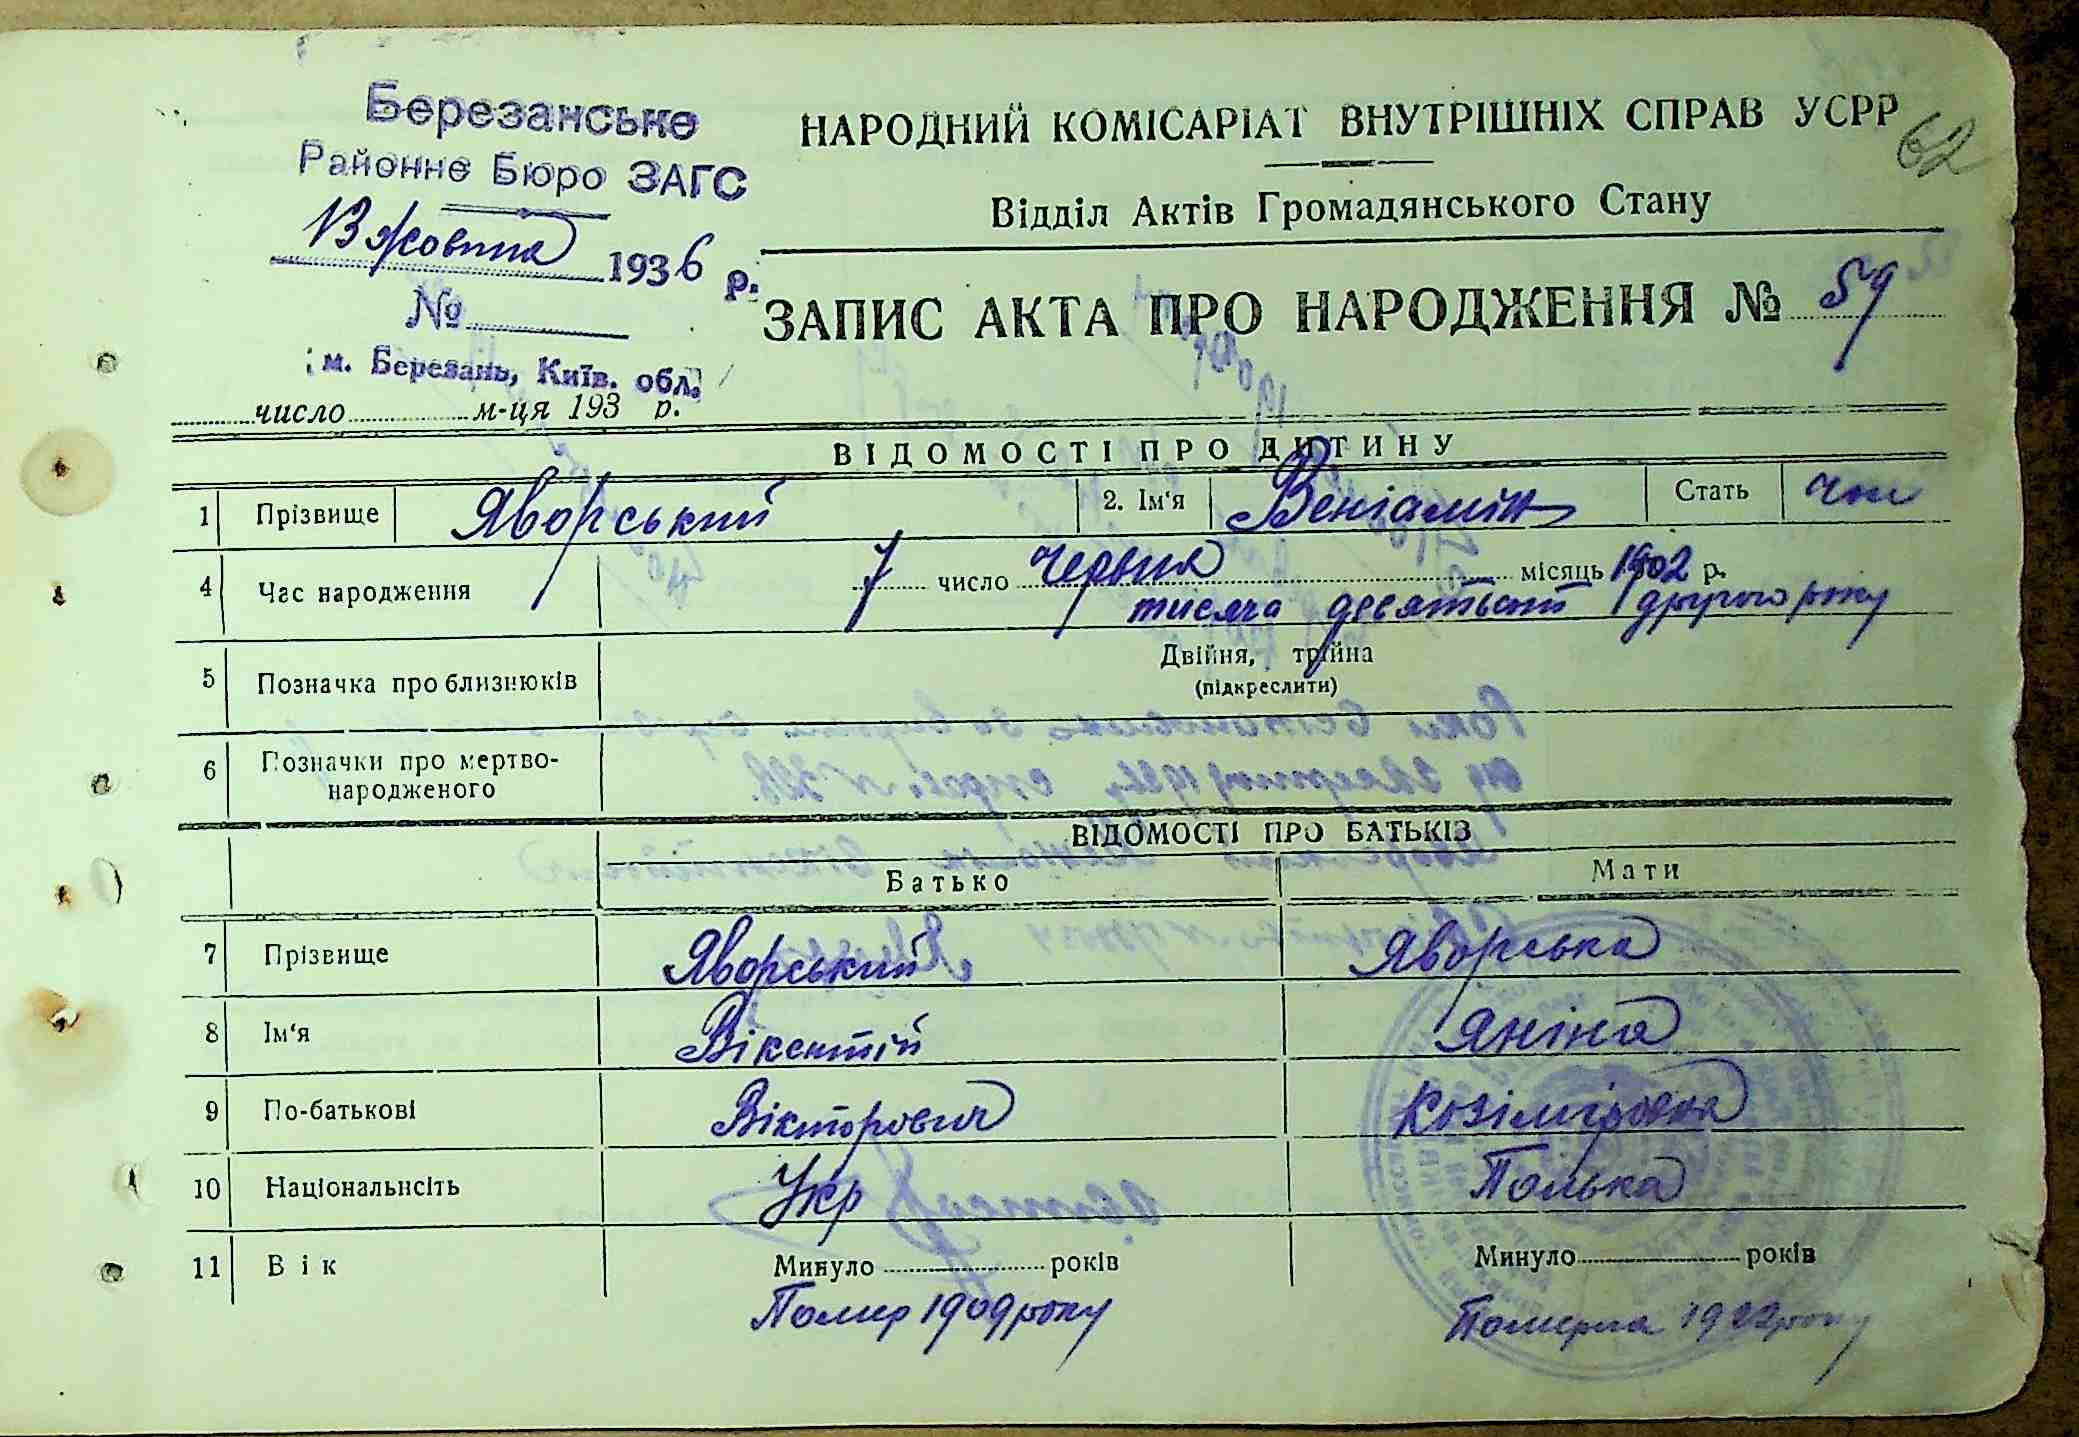 Березанське
Районне Бюро ЗАГС
13 жовтня 1936 р.
№
м. Березань, Київ. обл.
число м-ця 193 р.
НАРОДНИЙ КОМІСАРІАТ ВНУТРІШНІХ СПРАВ УСРР
62
Відділ Актів Громадянського Стану
ЗАПИС АКТА ПРО НАРОДЖЕННЯ № 59
ВІДОМОСТІ ПРО ДИТИНУ
1 Прізвище Яворський 2. Ім'я Веніамін Стать чол
4 Час народження 7 число червня місяць 1902 р.
тисяча девятьсот другого року
5 Позначка про близнюків Двійня, трійна
(підкреслити)
6 Позначки про мертво-
народженого
ВІДОМОСТІ ПРО БАТЬКІВ
Батько Мати
7 Прізвище Яворський Яворська
8 Ім'я Вікентій Яніна
9 По-батькові Вікторович Козіміровна
10 Національнсіть Укр Полька
11 Вік Минуло років Минуло років
Помер 1909 року Померла 1922 року